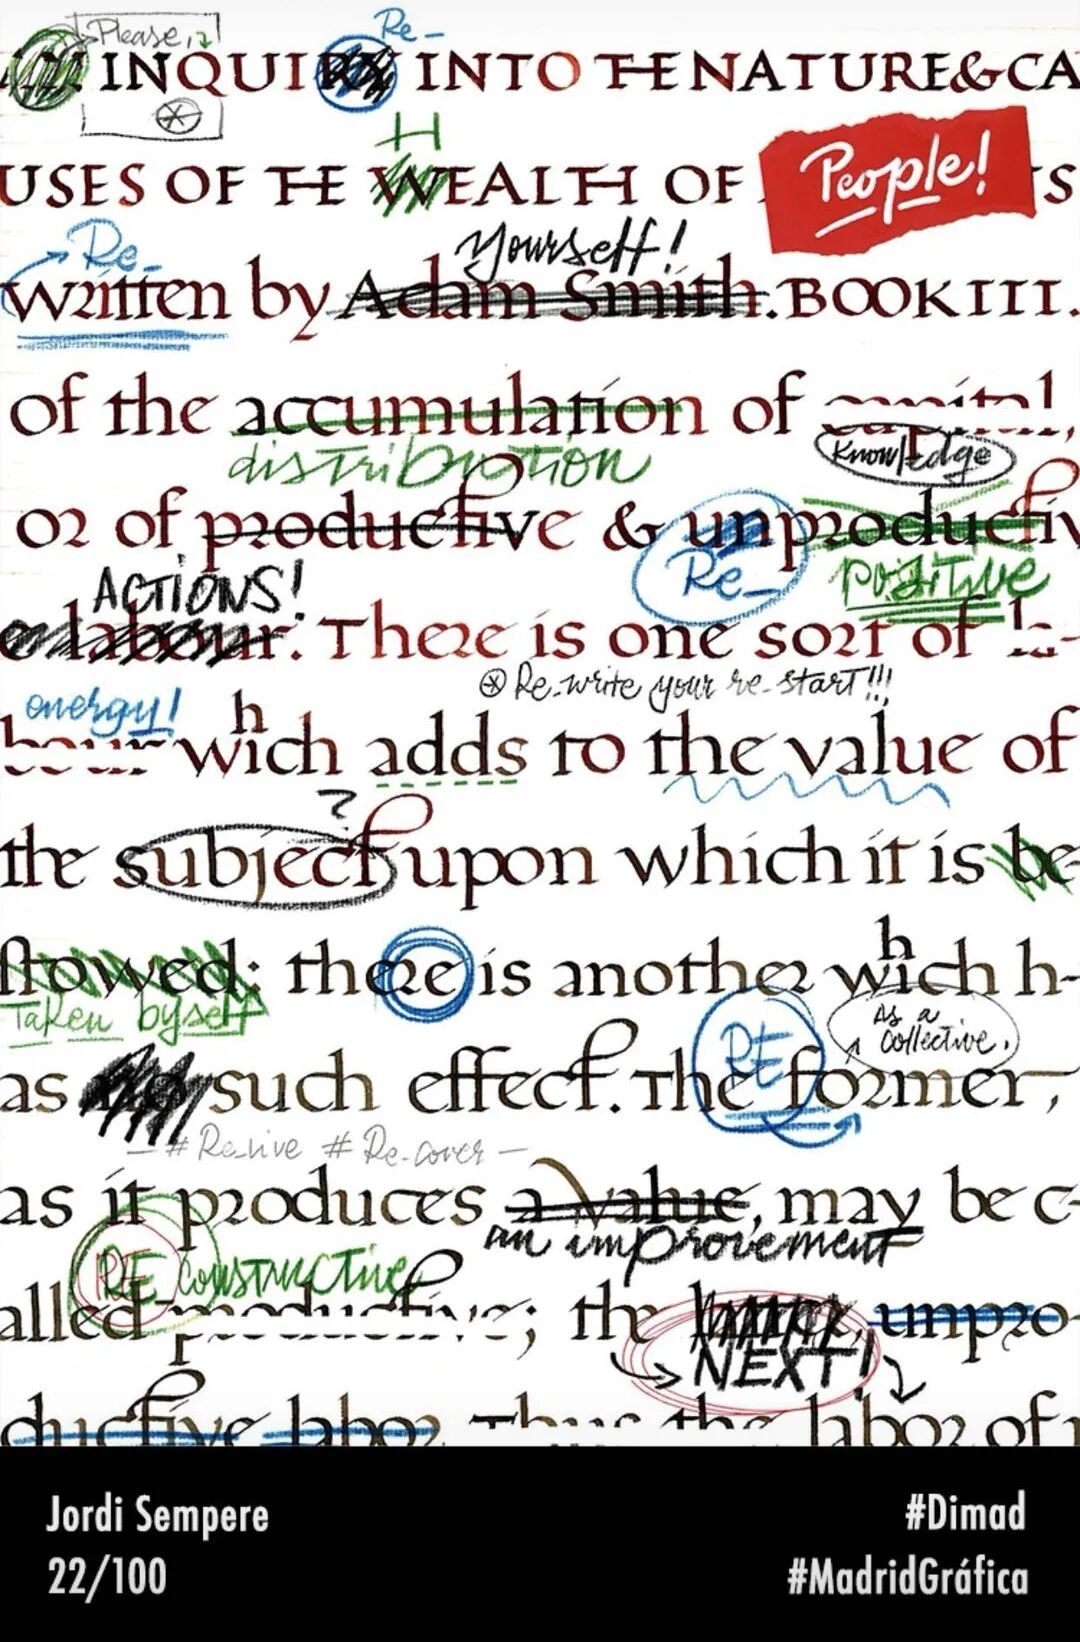 Please,
Re_
INQUI INTO THE NATURE & CA
H
USES OF THE WEALTH OF People! S
Re_ yourself!
written by Adam Smith. BOOK III.
of the accumulation of capital,
distribution Knowledge
or of productive & unproductiv
ACTIONS! Re_ positive
e labour. There is one sort of la-
⊛ Re-write your re-start!!!
energy! h
bour wich adds to the value of
?
the subject upon which it is be-
h
stowed: there is another wich h-
Taken by self RE As a collective.
as such effect. The former,
— # Re_live # Re-cover —
as it produces a value, may be c-
an improvement
RE_constructive
alled productive; the unpro-
NEXT!
ductive labor. Thus the labor of
Jordi Sempere #Dimad
22/100 #MadridGráfica